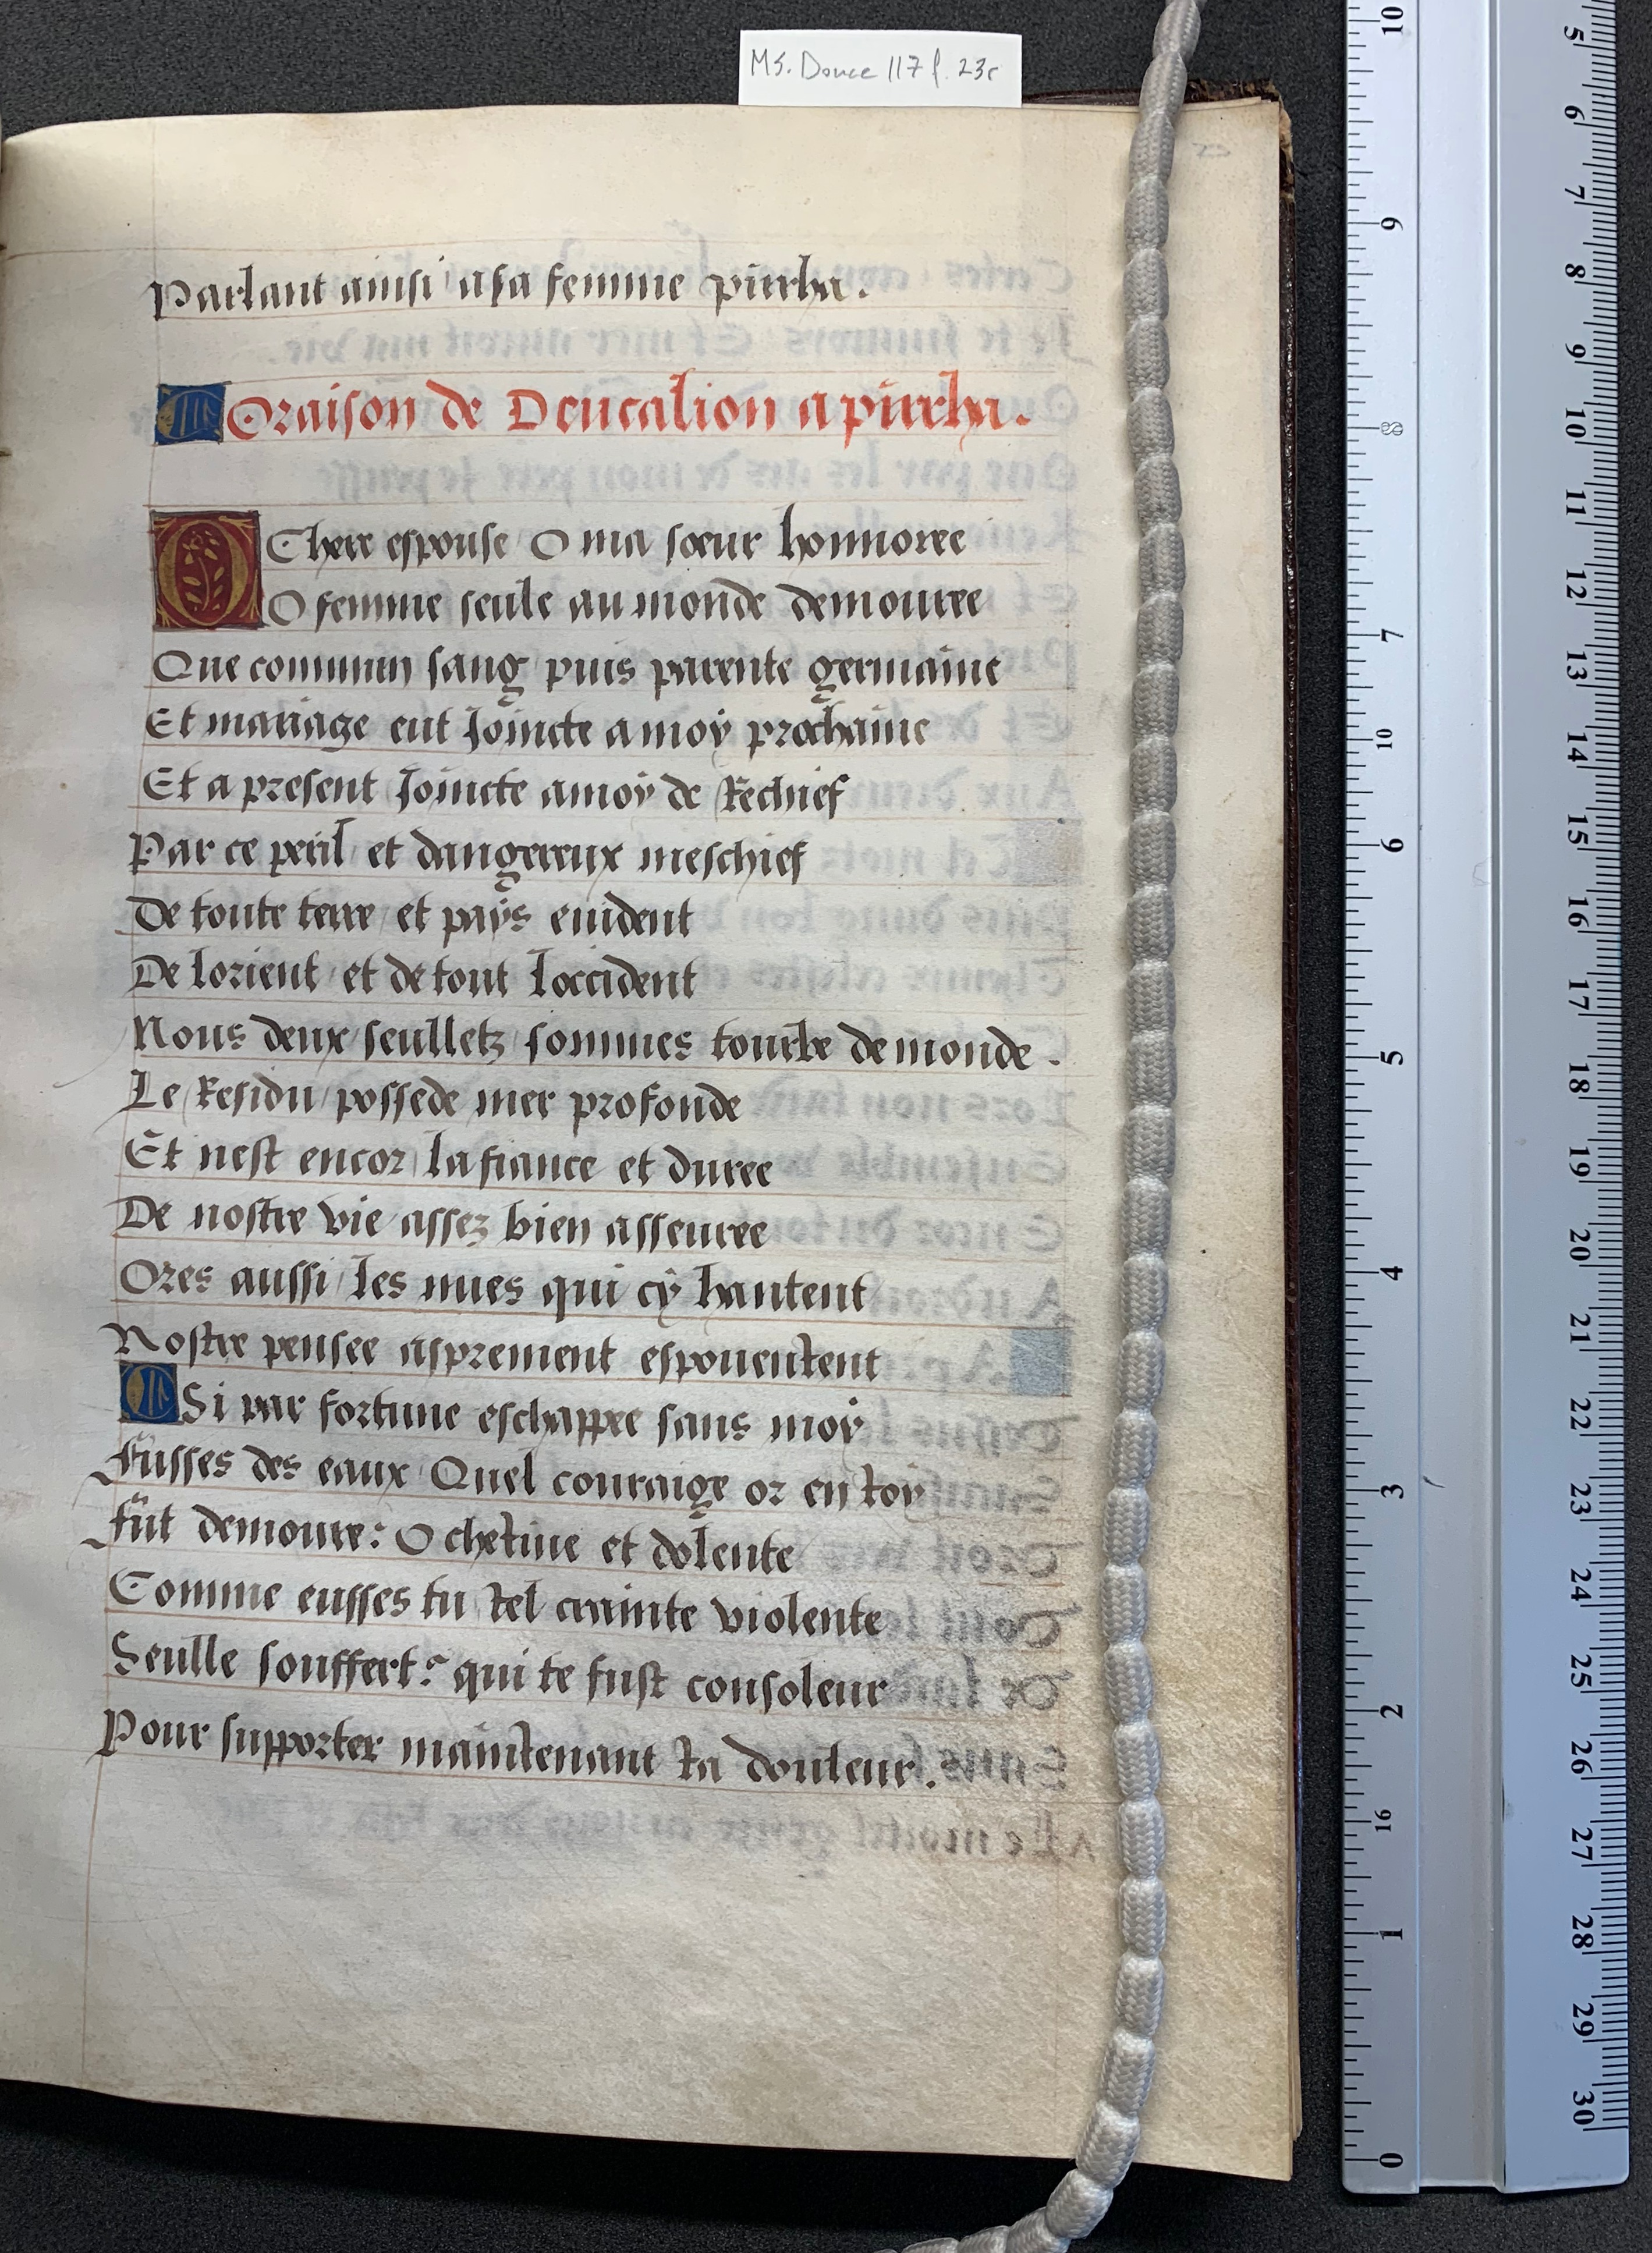 MS. Douce 117 f. 23r
Parlant ainsi a sa femme pirrha.
Oraison de Deucalion a pirrha.
O Chere espouse O ma soeur honnoree
O femme seule au monde demouree
Que commun sang puis parente germaine
Et mariage eut Joincte a moy prochaine
Et a present Joincte a moy de Rechief
Par ce peril et dangereux meschief
De toute terre et pays euident
De lorient et de tout loccident
Nous deux seulletz sommes tourbe de monde.
Le Residu possede mer profonde
Et nest encor la fiance et duree
De nostre vie assez bien asseuree
Ores aussi les nues qui cy hantent
Nostre pensee asprement espouentent
Si par fortune eschappee sans moy
Fusses des eaux Quel couraige or en toy
Fut demoure: O chetiue et dolente
Comme eusses tu tel crainte violente
Seulle souffert: qui te fust consoleur
Pour supporter maintenant ta douleur.
10
9
8
7
10
6
5
4
3
2
16
1
0
5
6
7
8
9
10
11
12
13
14
15
16
17
18
19
20
21
22
23
24
25
26
27
28
29
30